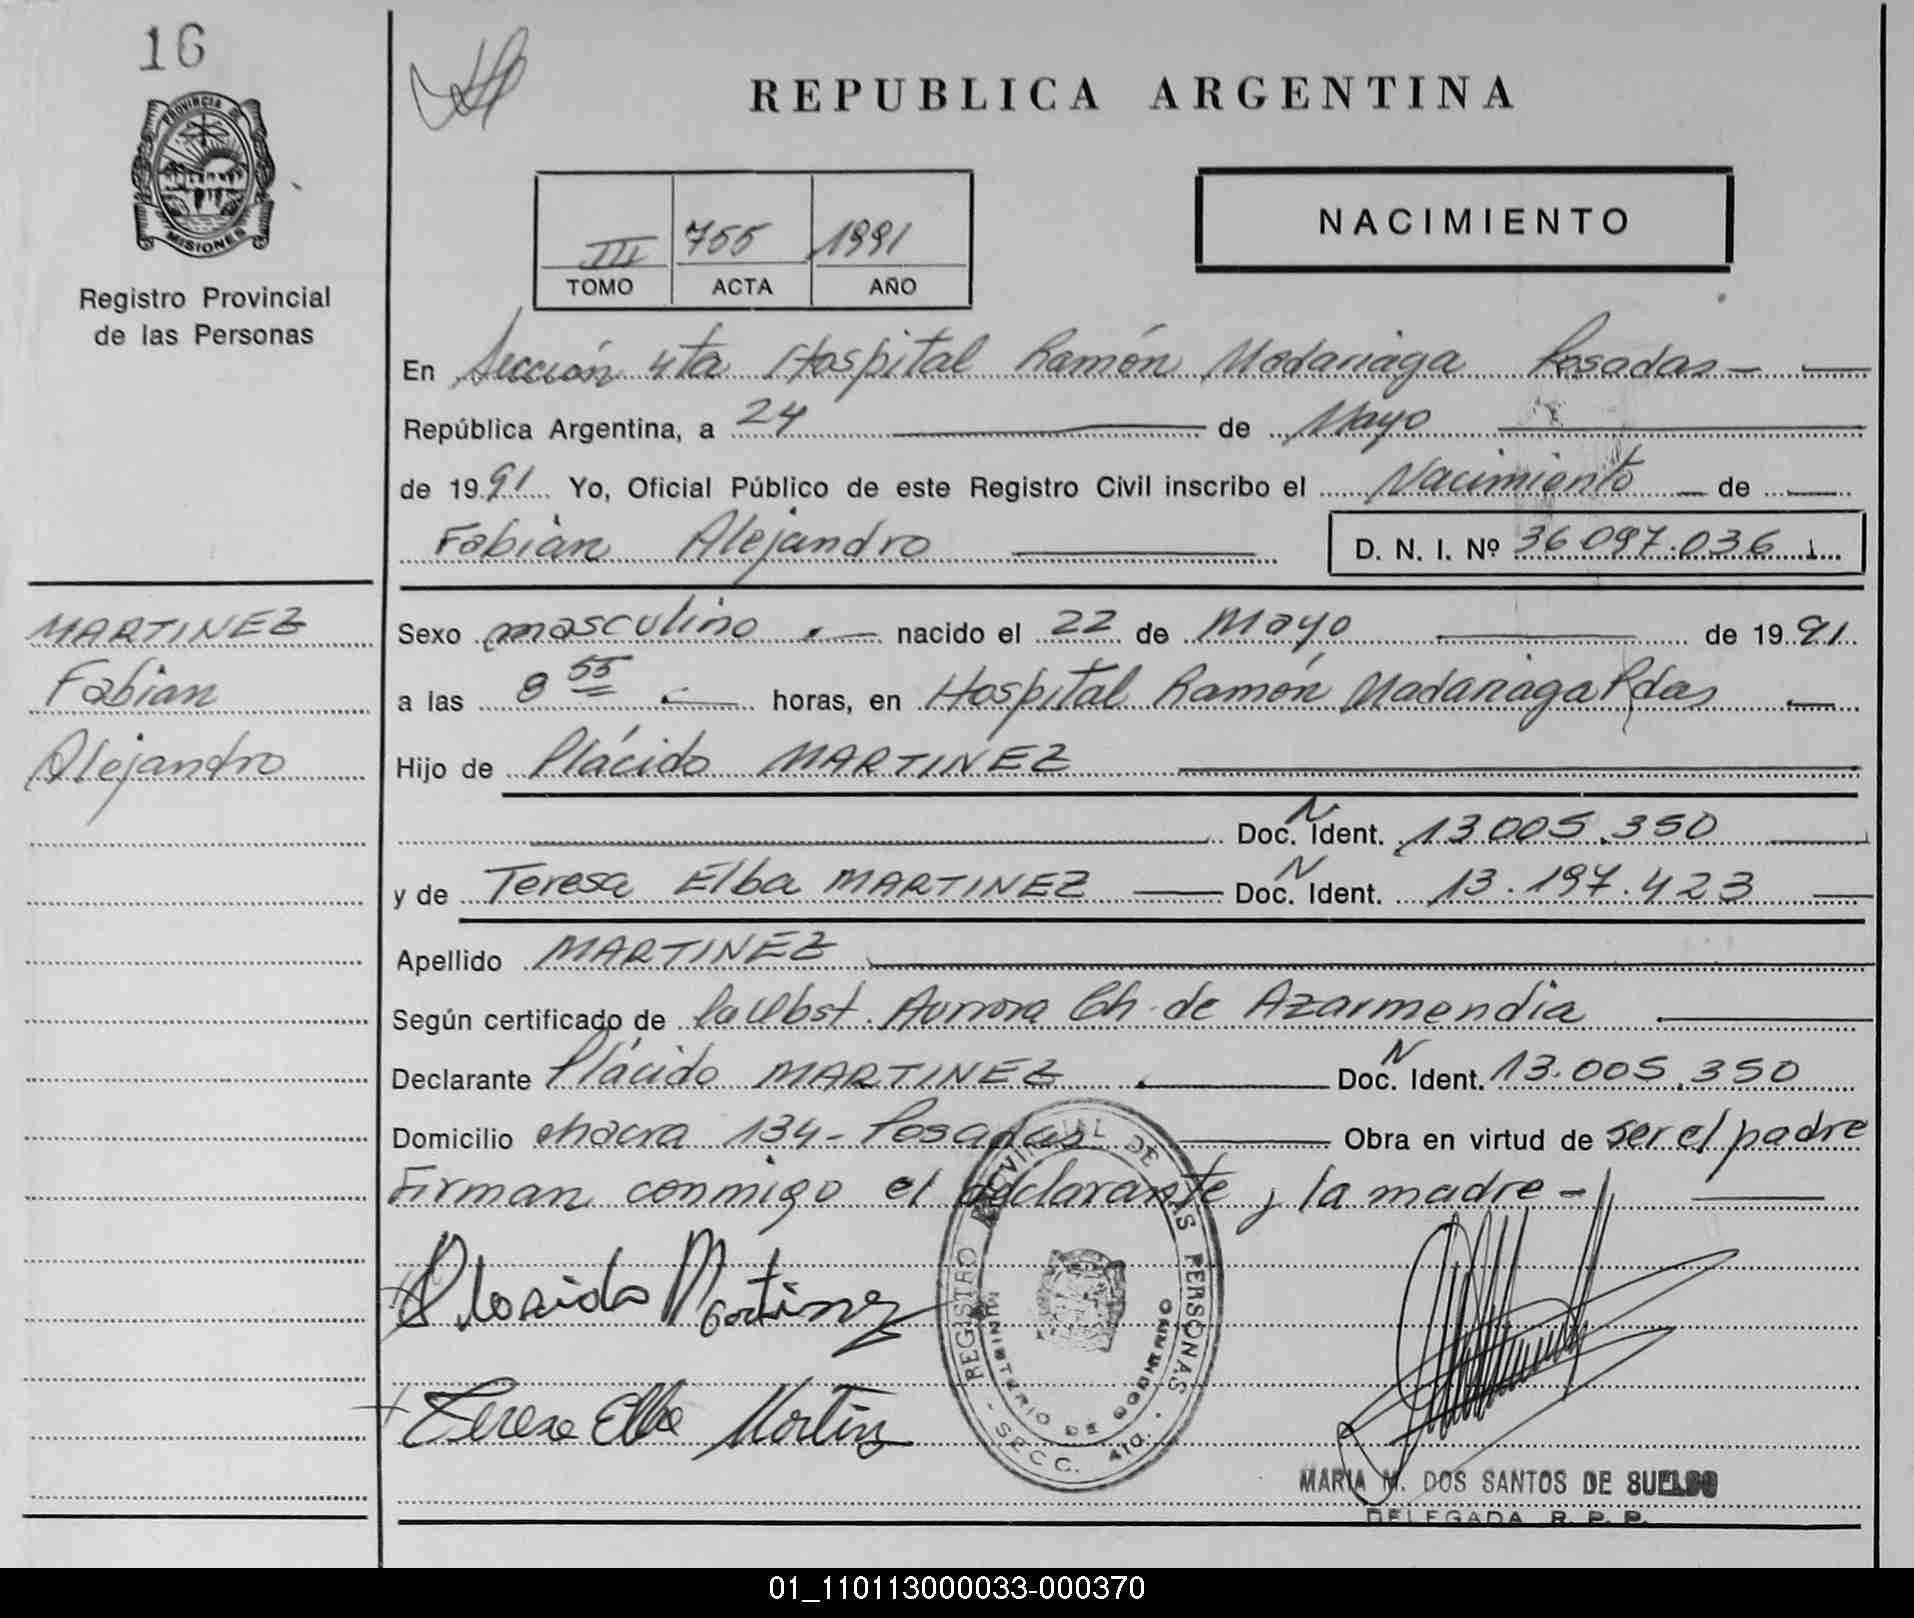 16
PROVINCIA DE
MISIONES
Registro Provincial
de las Personas
MARTINEZ
Fabian
Alejandro
REPUBLICA ARGENTINA
III 755 1991
TOMO ACTA AÑO
NACIMIENTO
En Sección 4ta Hospital Ramón Madariaga Posadas —
República Argentina, a 24 — de Mayo —
de 1991 Yo, Oficial Público de este Registro Civil inscribo el Nacimiento — de —
Fabián Alejandro — D. N. I. Nº 36.097.036
Sexo masculino . — nacido el 22 de Mayo — de 1991
a las 8 55 . — horas, en Hospital Ramón Madariaga Pdas —
Hijo de Plácido MARTINEZ —
— Doc. N Ident. 13.005.350 —
y de Teresa Elba MARTINEZ — Doc. N Ident. 13.197.423 —
Apellido MARTINEZ —
Según certificado de la Obst. Aurora Ch. de Azarmendia —
Declarante Plácido MARTINEZ . — Doc. N Ident. 13.005.350
Domicilio chacra 134 - Posadas — Obra en virtud de ser el padre
Firman conmigo el declarante y la madre - —
Placido Martinez
Teresa Elba Martinez
REGISTRO PROVINCIAL DE LAS PERSONAS
MINISTERIO DE GOBIERNO
MARIA M. DOS SANTOS DE SUELDO
DELEGADA R. P. P.
01_110113000033-000370